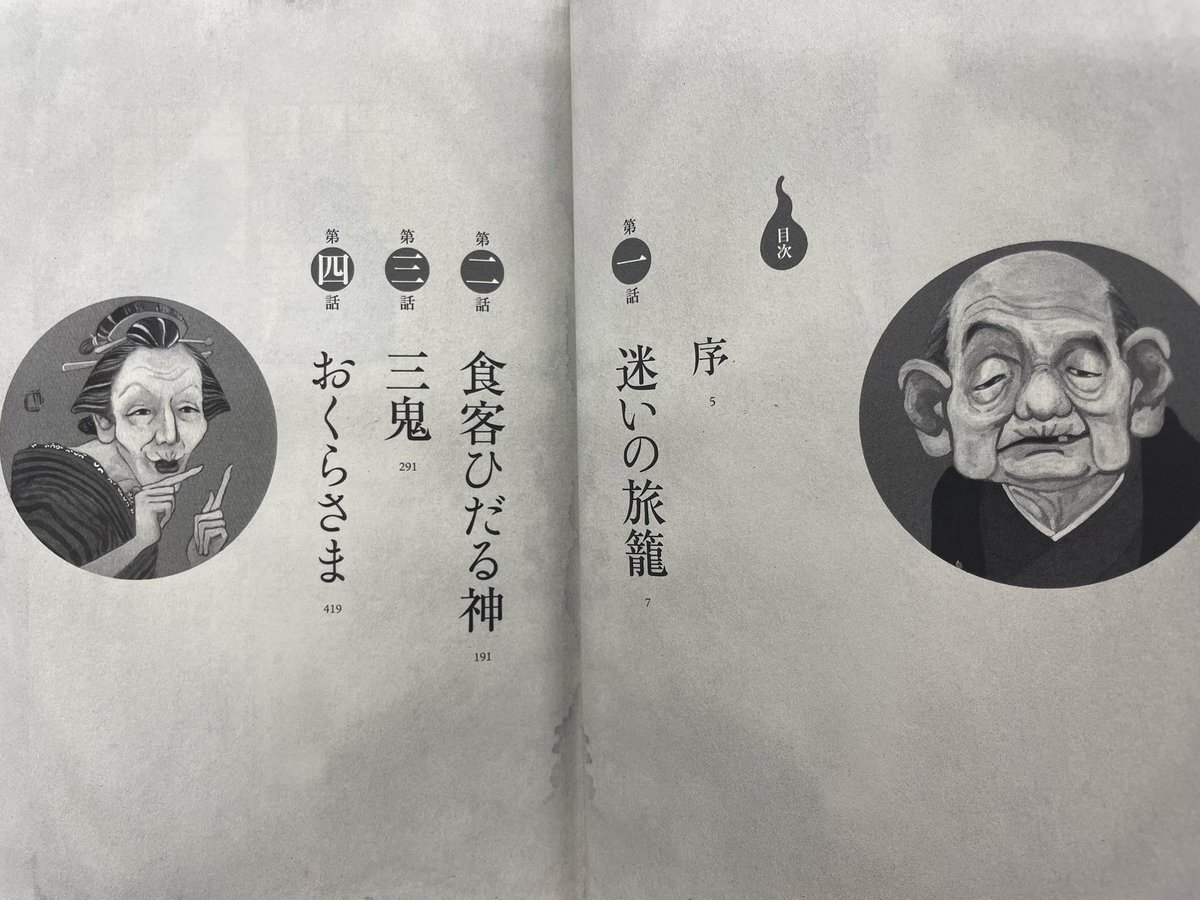 目次
序
5
第一話
迷いの旅籠
7
第二話
食客ひだる神
191
第三話
三鬼
291
第四話
おくらさま
419